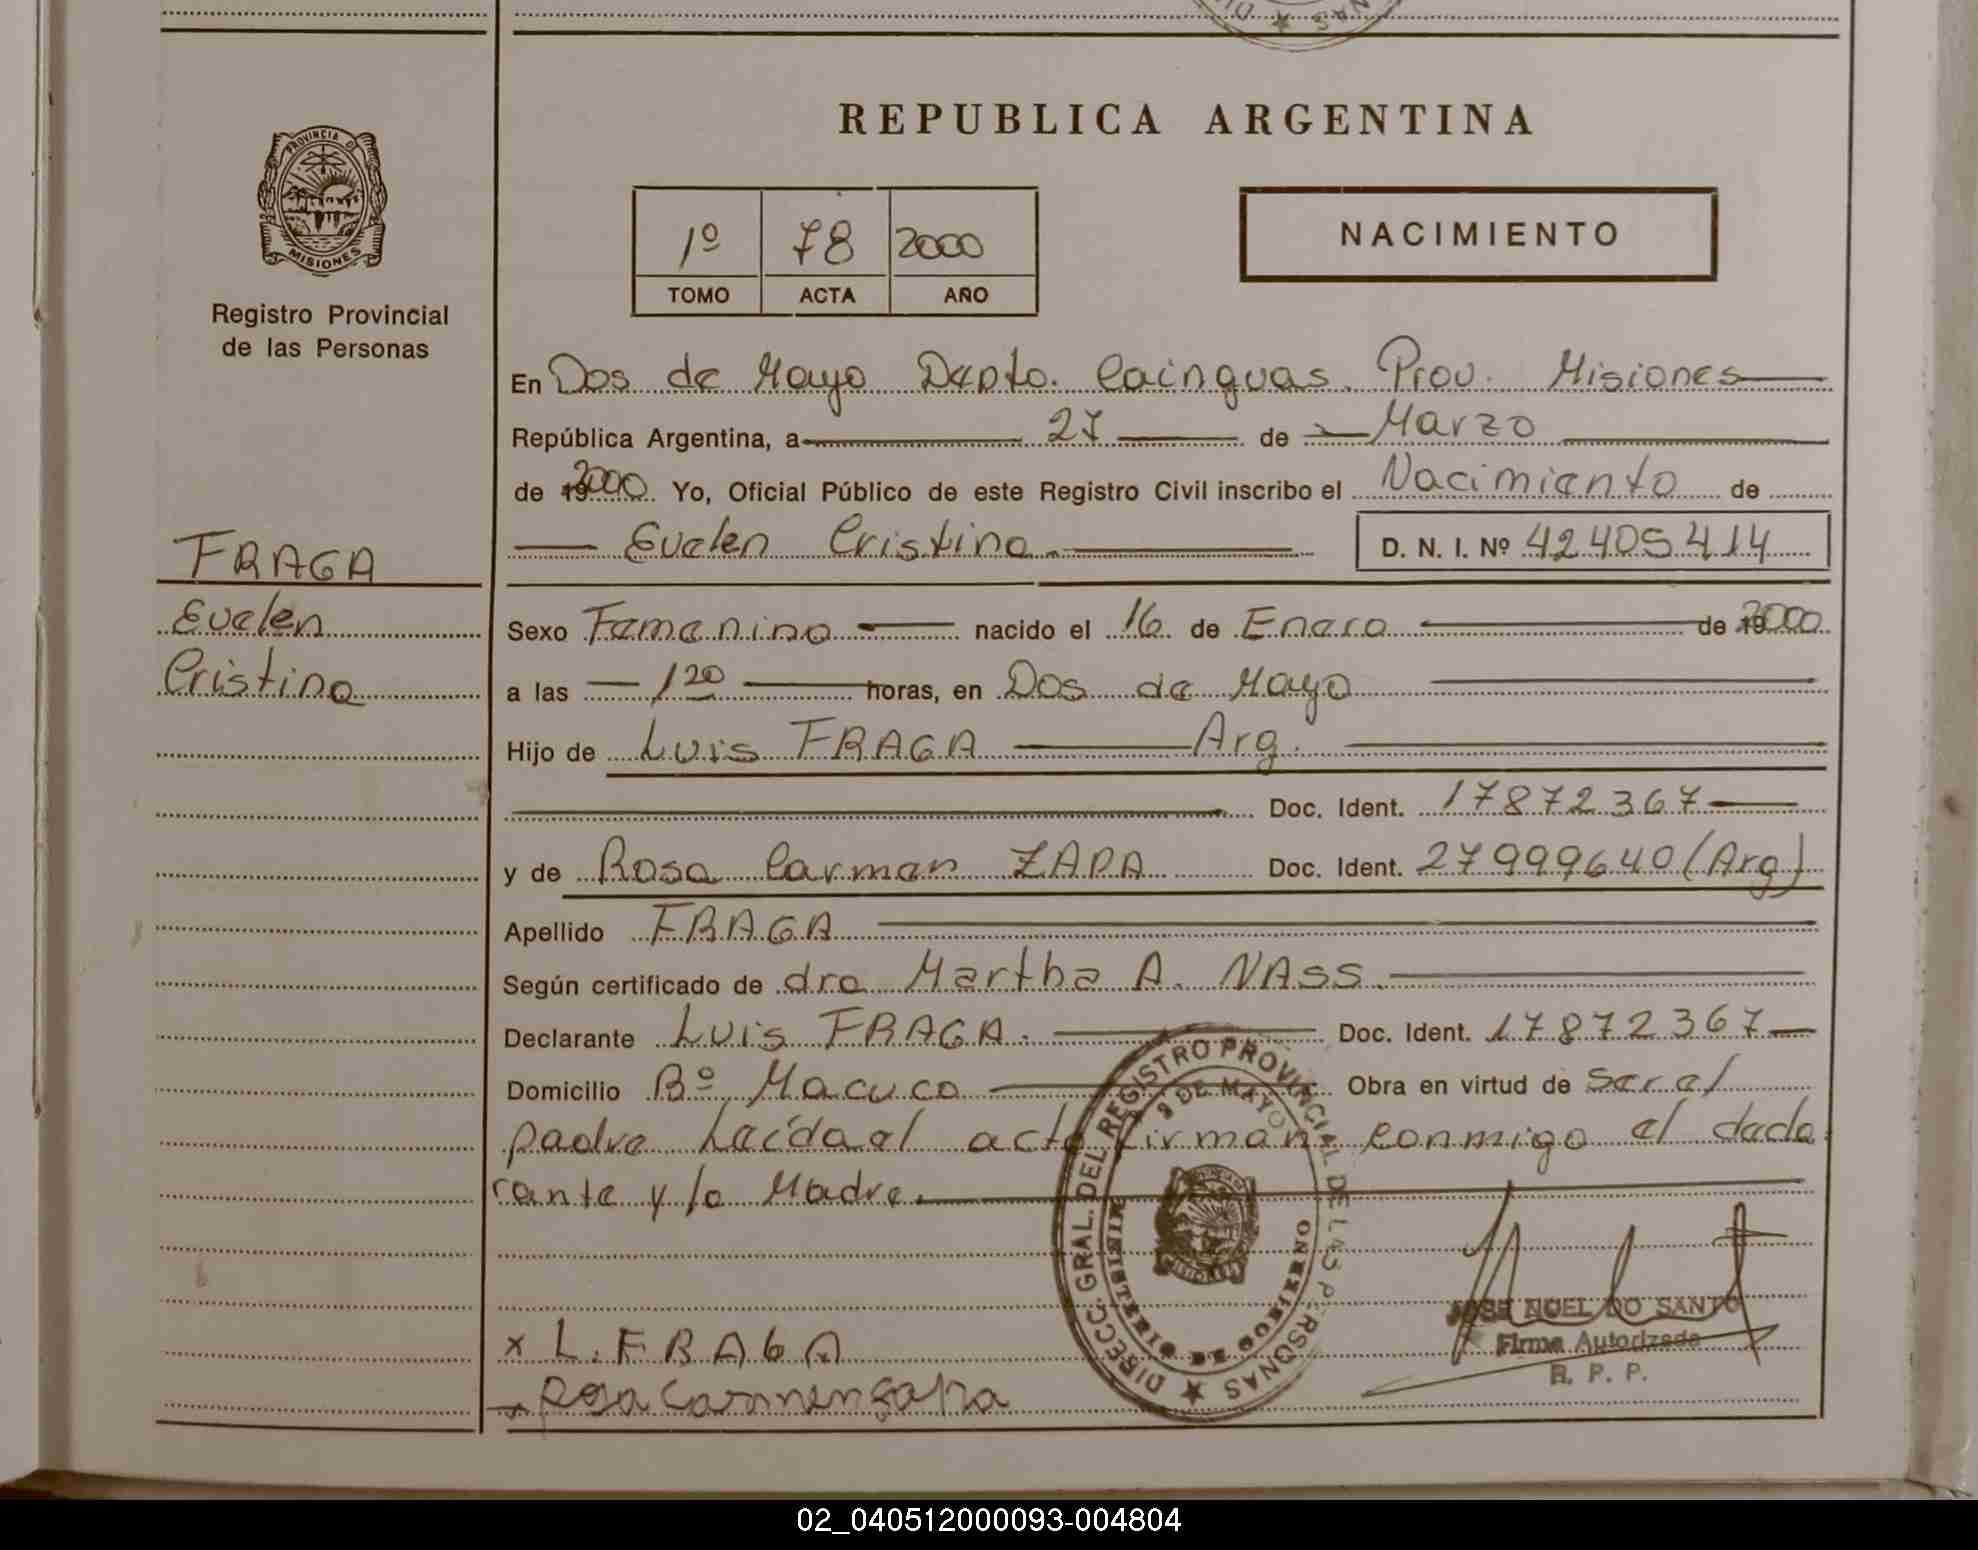 REPUBLICA ARGENTINA
PROVINCIA DE
MISIONES
Registro Provincial
de las Personas
1º 78 2000
TOMO ACTA AÑO
NACIMIENTO
En Dos de Mayo Depto. Cainguas. Prov. Misiones
República Argentina, a 27 de Marzo
de 2000 Yo, Oficial Público de este Registro Civil inscribo el Nacimiento de
Evelen Cristina. D. N. I. Nº 42405414
FRAGA
Evelen
Cristina
Sexo Femenino nacido el 16 de Enero de 2000
a las 1 20 horas, en Dos de Mayo
Hijo de Luis FRAGA Arg.
Doc. Ident. 17872367
y de Rosa Carmen ZAPA Doc. Ident. 27999640 (Arg)
Apellido FRAGA
Según certificado de dra Martha A. NASS.
Declarante Luis FRAGA. Doc. Ident. 17872367
Domicilio Bº Macuco Obra en virtud de ser el
padre Leída el acta firman conmigo el decla
rante y la Madre.
DIRECC. GRAL. DEL REGISTRO PROVINCIAL DE LAS PERSONAS
2 DE MAYO
MISIONES
JOSE NOEL DO SANTO
Firma Autorizada
R. P. P.
x L. FRAGA
x Rosa Carmen Sapa
02_040512000093-004804